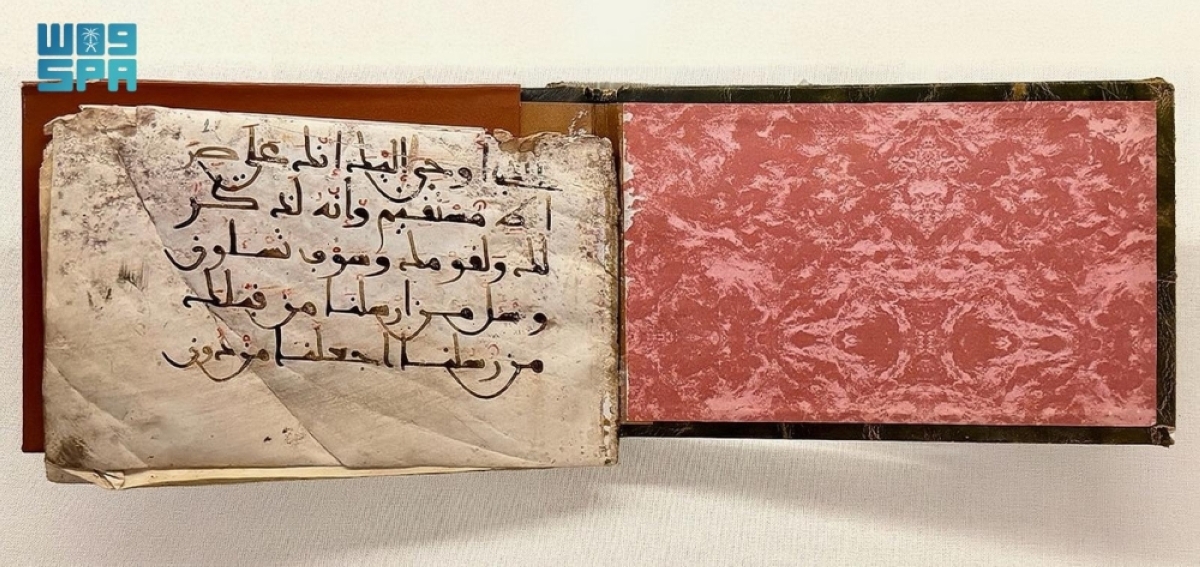 واس
SPA
أوحي إليك إنك على صر
اط مستقيم وإنه لذكر
لك ولقومك وسوف تسلون
وسل من ارسلنا من قبلك
من رسلنا اجعلنا من دون